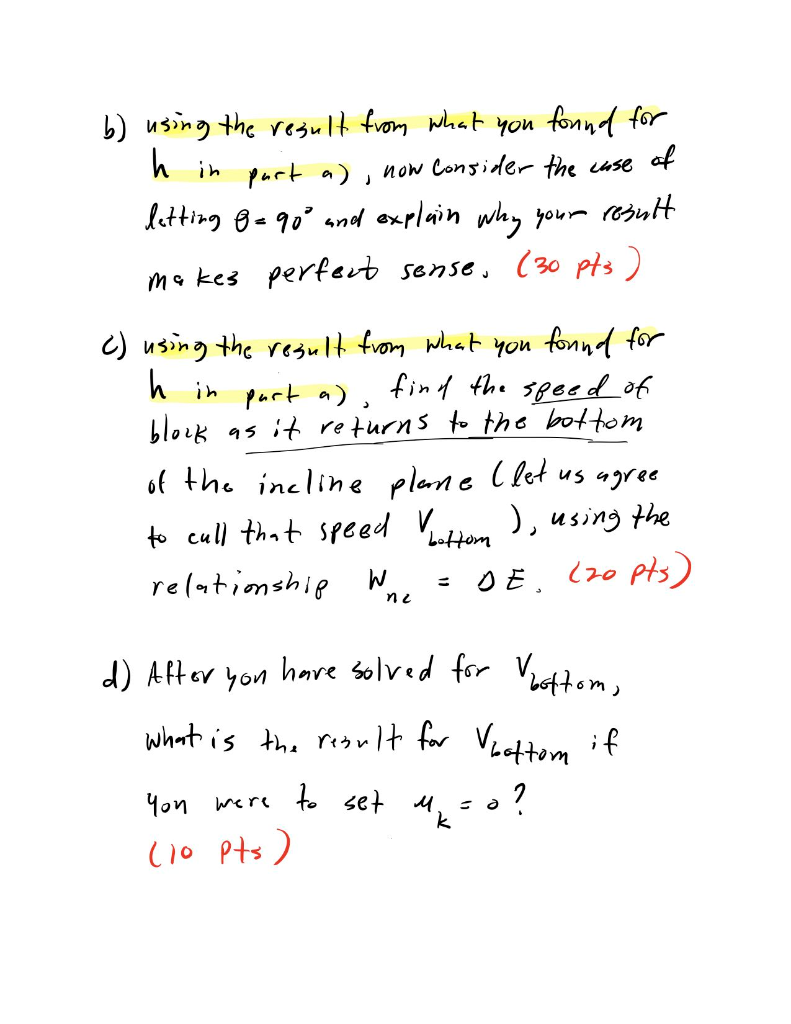 b) using the result from what you found for
h in part a), now consider the case of
letting θ = 90° and explain why your result
makes perfect sense. (30 pts)
c) using the result from what you found for
h in part a), find the speed of
block as it returns to the bottom
of the incline plane (let us agree
to call that speed V_bottom), using the
relationship W_nc = ΔE. (20 pts)
d) After you have solved for V_bottom,
what is the result for V_bottom if
you were to set μ_k = 0?
(10 pts)